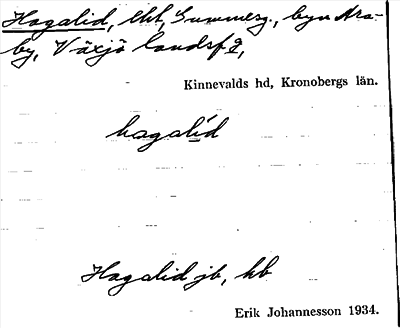 Hagalid, lht, Gummesg., byn Ara-
by, Växjö landsf͟g,
Kinnevalds hd, Kronobergs län.
hagalíd
Hagalid jb, kb
Erik Johannesson 1934.